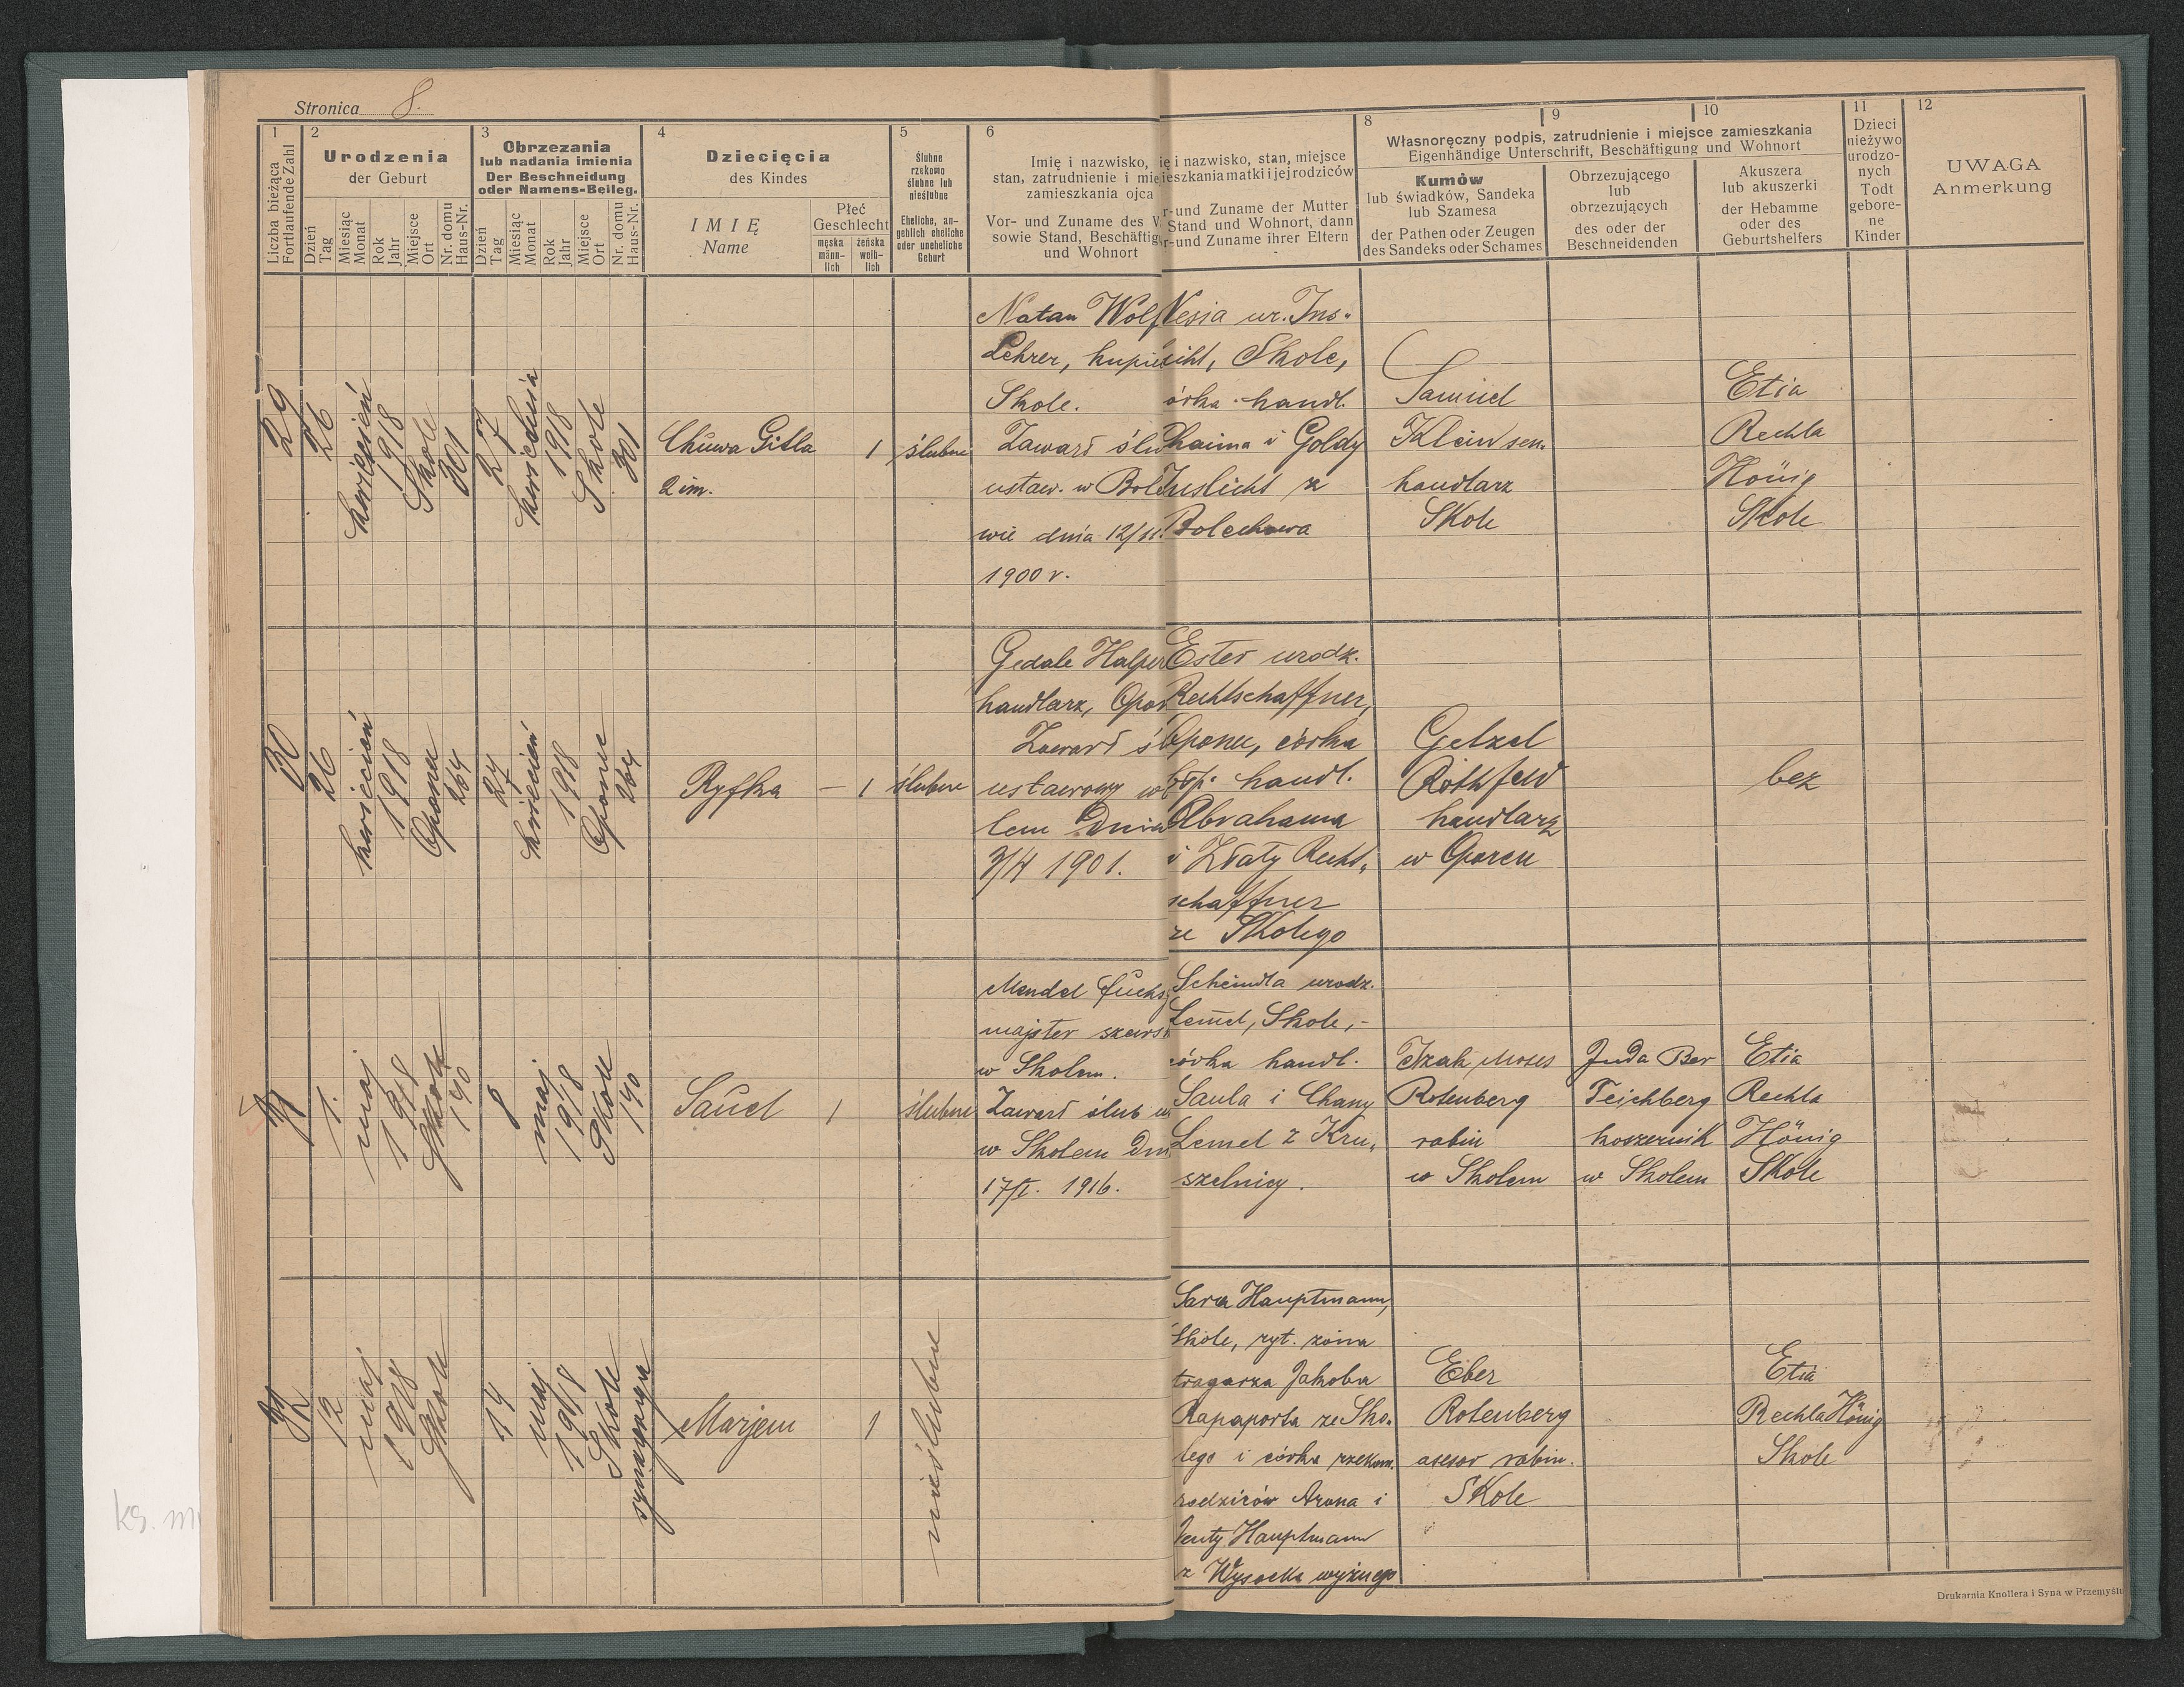 Stronica 8.
1 2 3 4 5 6 8 9 10 11 12
Liczba bieżąca
Fortlaufende Zahl
Urodzenia
der Geburt
Dzień
Tag
Miesiąc
Monat
Rok
Jahr
Miejsce
Ort
Nr. domu
Haus-Nr.
Obrzezania
lub nadania imienia
Der Beschneidung
oder Namens-Beileg.
Dzień
Tag
Miesiąc
Monat
Rok
Jahr
Miejsce
Ort
Nr. domu
Haus-Nr.
Dziecięcia
des Kindes
IMIĘ
Name
Płeć
Geschlecht
męska
männ-
lich
żeńska
weib-
lich
Ślubne
rzekomo
ślubne lub
nieślubne
Eheliche, an-
geblich eheliche
oder uneheliche
Geburt
Imię i nazwisko,
stan, zatrudnienie i mie
zamieszkania ojca
Vor- und Zuname des V
sowie Stand, Beschäftig
und Wohnort
ię i nazwisko, stan, miejsce
ieszkania matki i jej rodziców
r-und Zuname der Mutter
Stand und Wohnort, dann
r-und Zuname ihrer Eltern
Własnoręczny podpis, zatrudnienie i miejsce zamieszkania
Eigenhändige Unterschrift, Beschäftigung und Wohnort
Kumów
lub świadków, Sandeka
lub Szamesa
der Pathen oder Zeugen
des Sandeks oder Schames
Obrzezującego
lub
obrzezujących
des oder der
Beschneidenden
Akuszera
lub akuszerki
der Hebamme
oder des
Geburtshelfers
Dzieci
nieżywo
urodzo-
nych
Todt
gebore-
ne
Kinder
UWAGA
Anmerkung
29
26
kwiecień
1918
Skole
301
27
kwietnia
1918
Skole
301
Chuwa Gitla
2 im.
1
ślubne
Natan Wolf
Lehrer, kupie
Skole.
Zawarł ślu
ustaw. w Bol
wie dnia 12/11.
1900 r.
Nesia ur. Ins-
licht, Skole,
órka handl.
Chaima i Goldy
Inslicht z
Bolechowa
Samuel
Klein sen.
handlarz
Skole
Etia
Rechla
Hönig
Skole
30
26
kwiecień
1918
Oponec
264
27
kwiecień
1918
Oponec
264
Ryfka
— 1
ślubne
Gedale Halper
handlarz, Opor
Zawarł ś
ustawowy w
lem Dnia
3/4 1901.
Ester urodz.
Rechtschaffner,
córka
handl.
Abrahama
i Złaty Recht-
schaffner
ze Skolego
Getzel
Rothfeld
handlarz
w Oporcu
bez
31
1.
maj
1918
Skole
190
8
maj
1918
Skole
190
Sauel
1
ślubne
Mendel Fuchs,
majster szews
w Skolem.
Zawarł ślub
w Skolem Dn
17/I. 1916.
Scheindla urodz.
Lemel, Skole,-
córka handl.
Saula i Chany
Lemel z Kru-
szelnicy.
Izak Moses
Rotenberg
rabin
w Skolem
Juda Ber
Teichberg
koszernik
w Skolem
Etia
Rechla
Hönig
Skole
32
12
maj
1918
Skole
14
maj
1918
Skole
synagoga
Marjem
1
nieślubne
Sara Hauptmann,
Skole, ryt. żona
tragarza Jakoba
Rapaporta ze Sko-
lego i córka rzekom.
rodziców Arona i
Jenty Hauptmann
z Wysocka wyżnego
Eber
Rotenberg
asesor rabin.
Skole
Etia
Rechla Hönig
Skole
Drukarnia Knollera i Syna w Przemyślu
ks. m